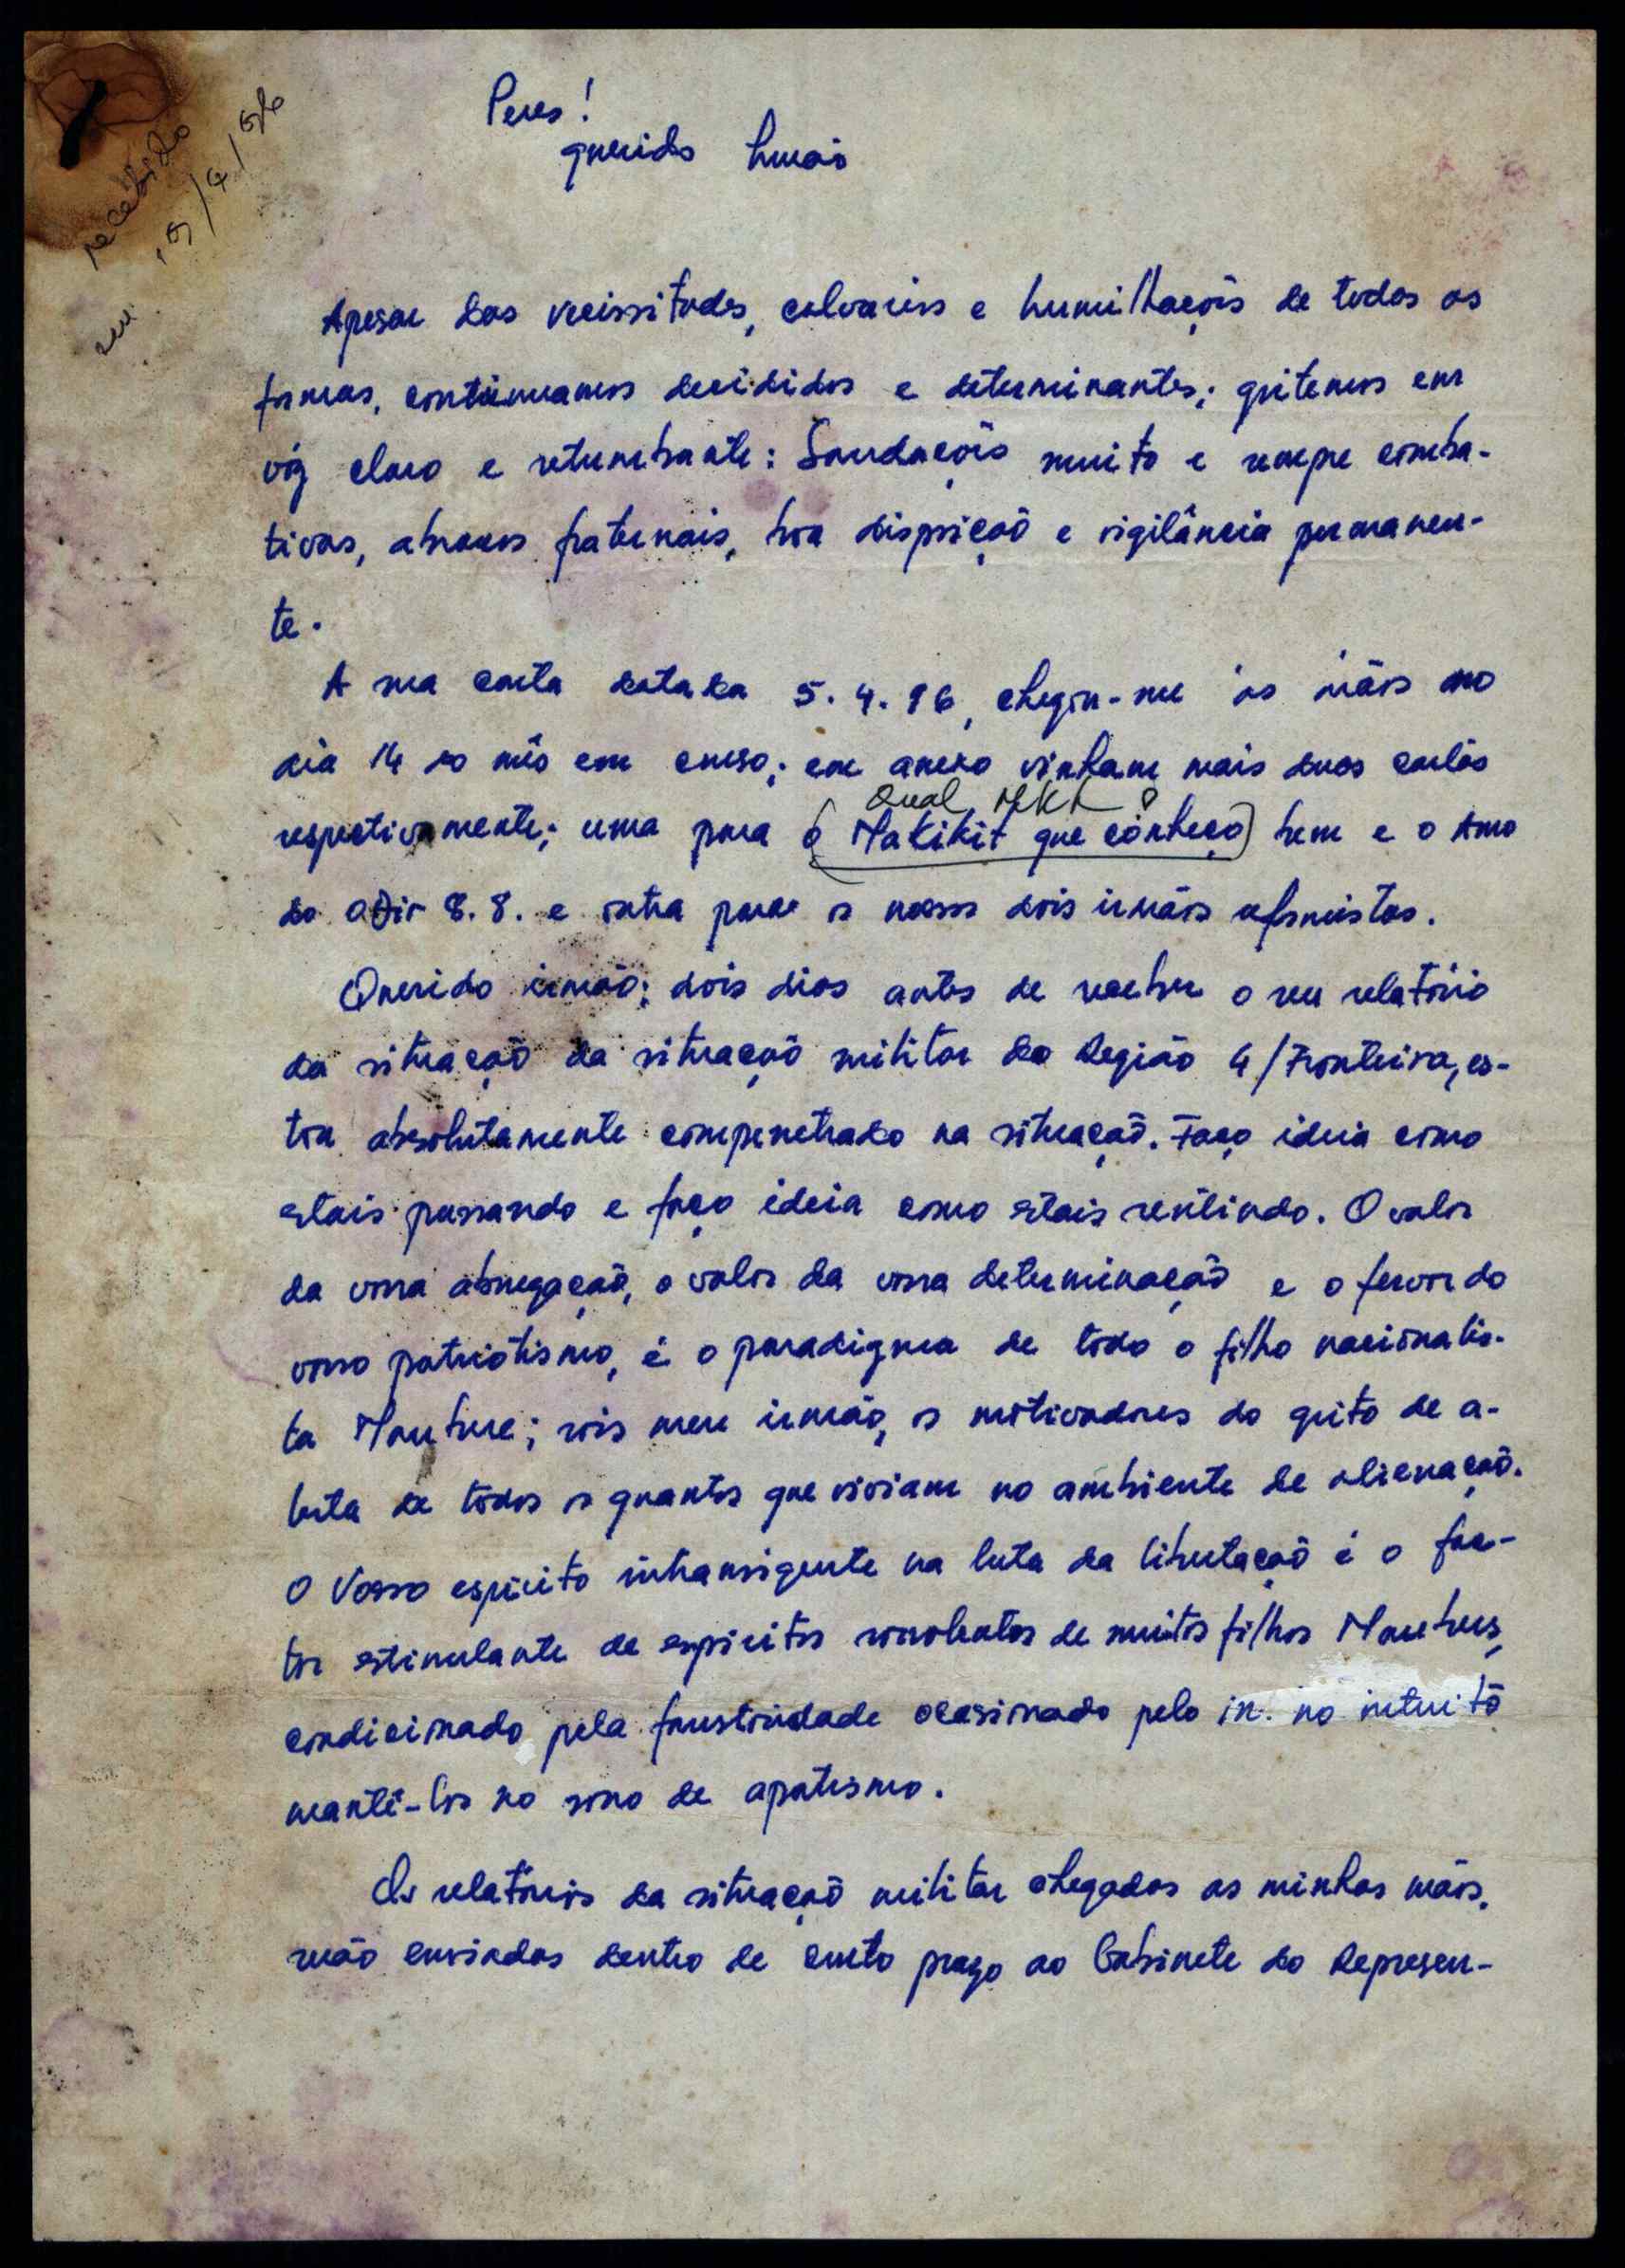 recebido
em
Peres!
querido Irmão
Apesar das vicissitudes, calvarios e humilhaçõis de todas as
formas, continuamos decididos e determinantes; gritemos em
vóz claro e retumbante: Saudaçõis muito e sempre comba-
tivas, abraços fraternais, boa disposiçaõ e vigilância permanen-
te.
A sua carta datada 5.4.96, chegou-me às mãos no
dia 14 do mês em curso; em anexo vinham mais duas cartas
Qual MKK?
respectivamente; uma para o Makikit que conheço bem e o Amo
do 8.8. e outra para os nossos dois irmãos
Querido irmão; dois dias antes de receber o seu relatório
da situaçaõ da situaçaõ militar da Região 4/Fronteira, es-
tou absolutamente compenetrado na situaçaõ. Faço ideia como
estais passando e faço ideia como estais sentindo. O valor
da vossa abnegaçaõ, o valor da vossa determinaçaõ e o fervor do
vosso patriotismo, é o paradigma de todo o filho nacionalis-
ta Maubere; sois meu irmão, os motivadores do grito de a-
lerta de todos os quantos que viviam no ambiente de alienaçaõ.
O Vosso espirito intransigente na luta da libertaçaõ é o fac-
tor estimulante de espiritos sonolentos de muitos filhos Mauberes,
condicionado pela ocasionado pelo in. no intuito
mantê-los no sono de apatismo.
Os relatórios da situaçaõ militar chegados as minhas mãos,
serão enviados dentro de curto prazo ao Gabinete do Represen-